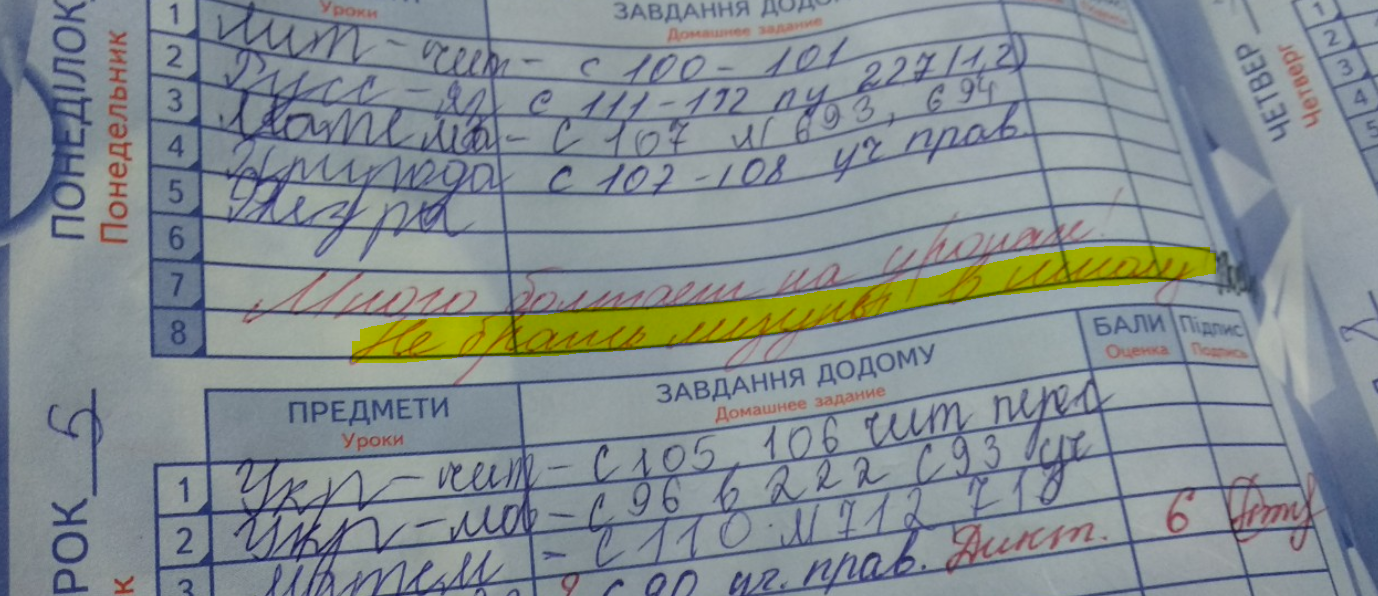 ПОНЕДІЛОК
Понедельник
Уроки
ЗАВДАННЯ ДОДО
Домашнее задание
1 Лит-чит- с 100-101
2 Русс-яз с 111-112 пу 227(1,2)
3 Матема- с 107 N 693, 694
4 Природа с 107-108 уч прав.
5 Физ ра
6
7 Много болтает на уроках!
8 Не брать лизуны в школу
ЧЕТВЕР
Четверг
1
2
3
4
5
РОК 5
к
ПРЕДМЕТИ
Уроки
ЗАВДАННЯ ДОДОМУ
Домашнее задание
БАЛИ
Оценка
Підпис
Подпись
1 Укр-чит- с 105, 106 чит перев
2 Укр-мов- с 96 в 222 с 93 уч
3 Матем - с 110 N 712 718
с 90 уч. прав. Дикт. 6